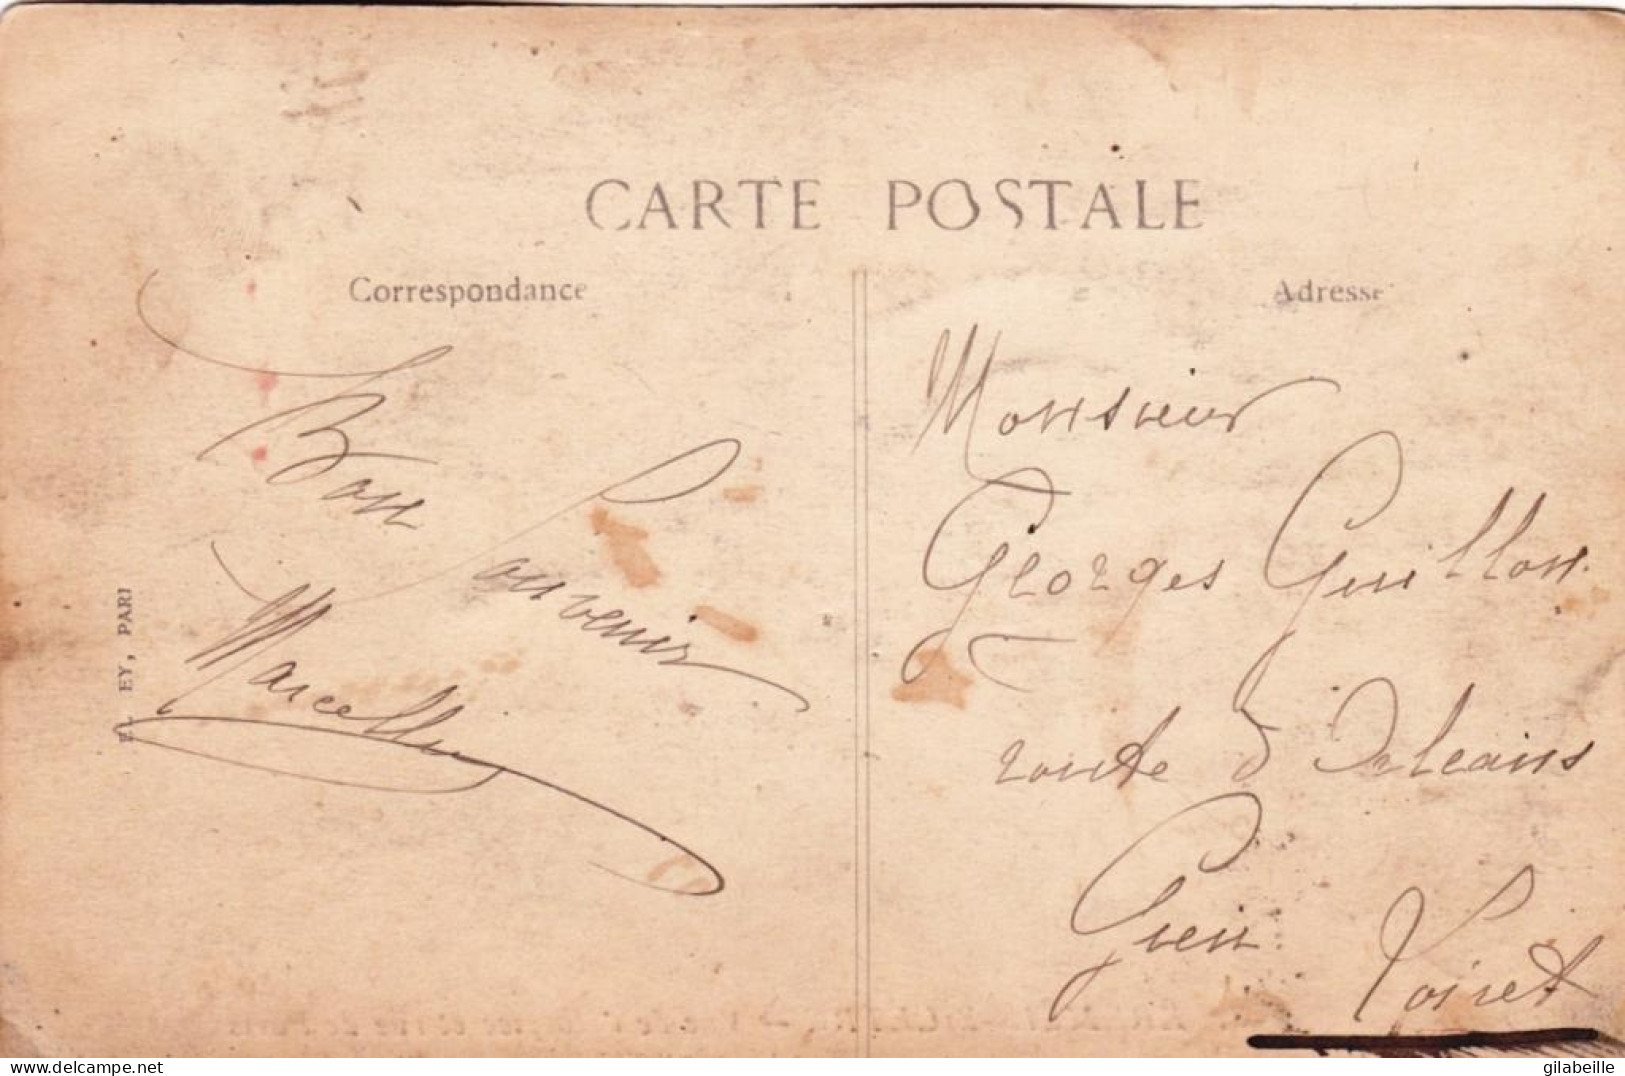 CARTE POSTALE
Correspondance
Adresse
Bon
Souvenir
Marcelle
Monsieur
Georges Guillon
route d'Orleans
Gien
Loiret
EY, PARI
delcampe.net
gilabeille